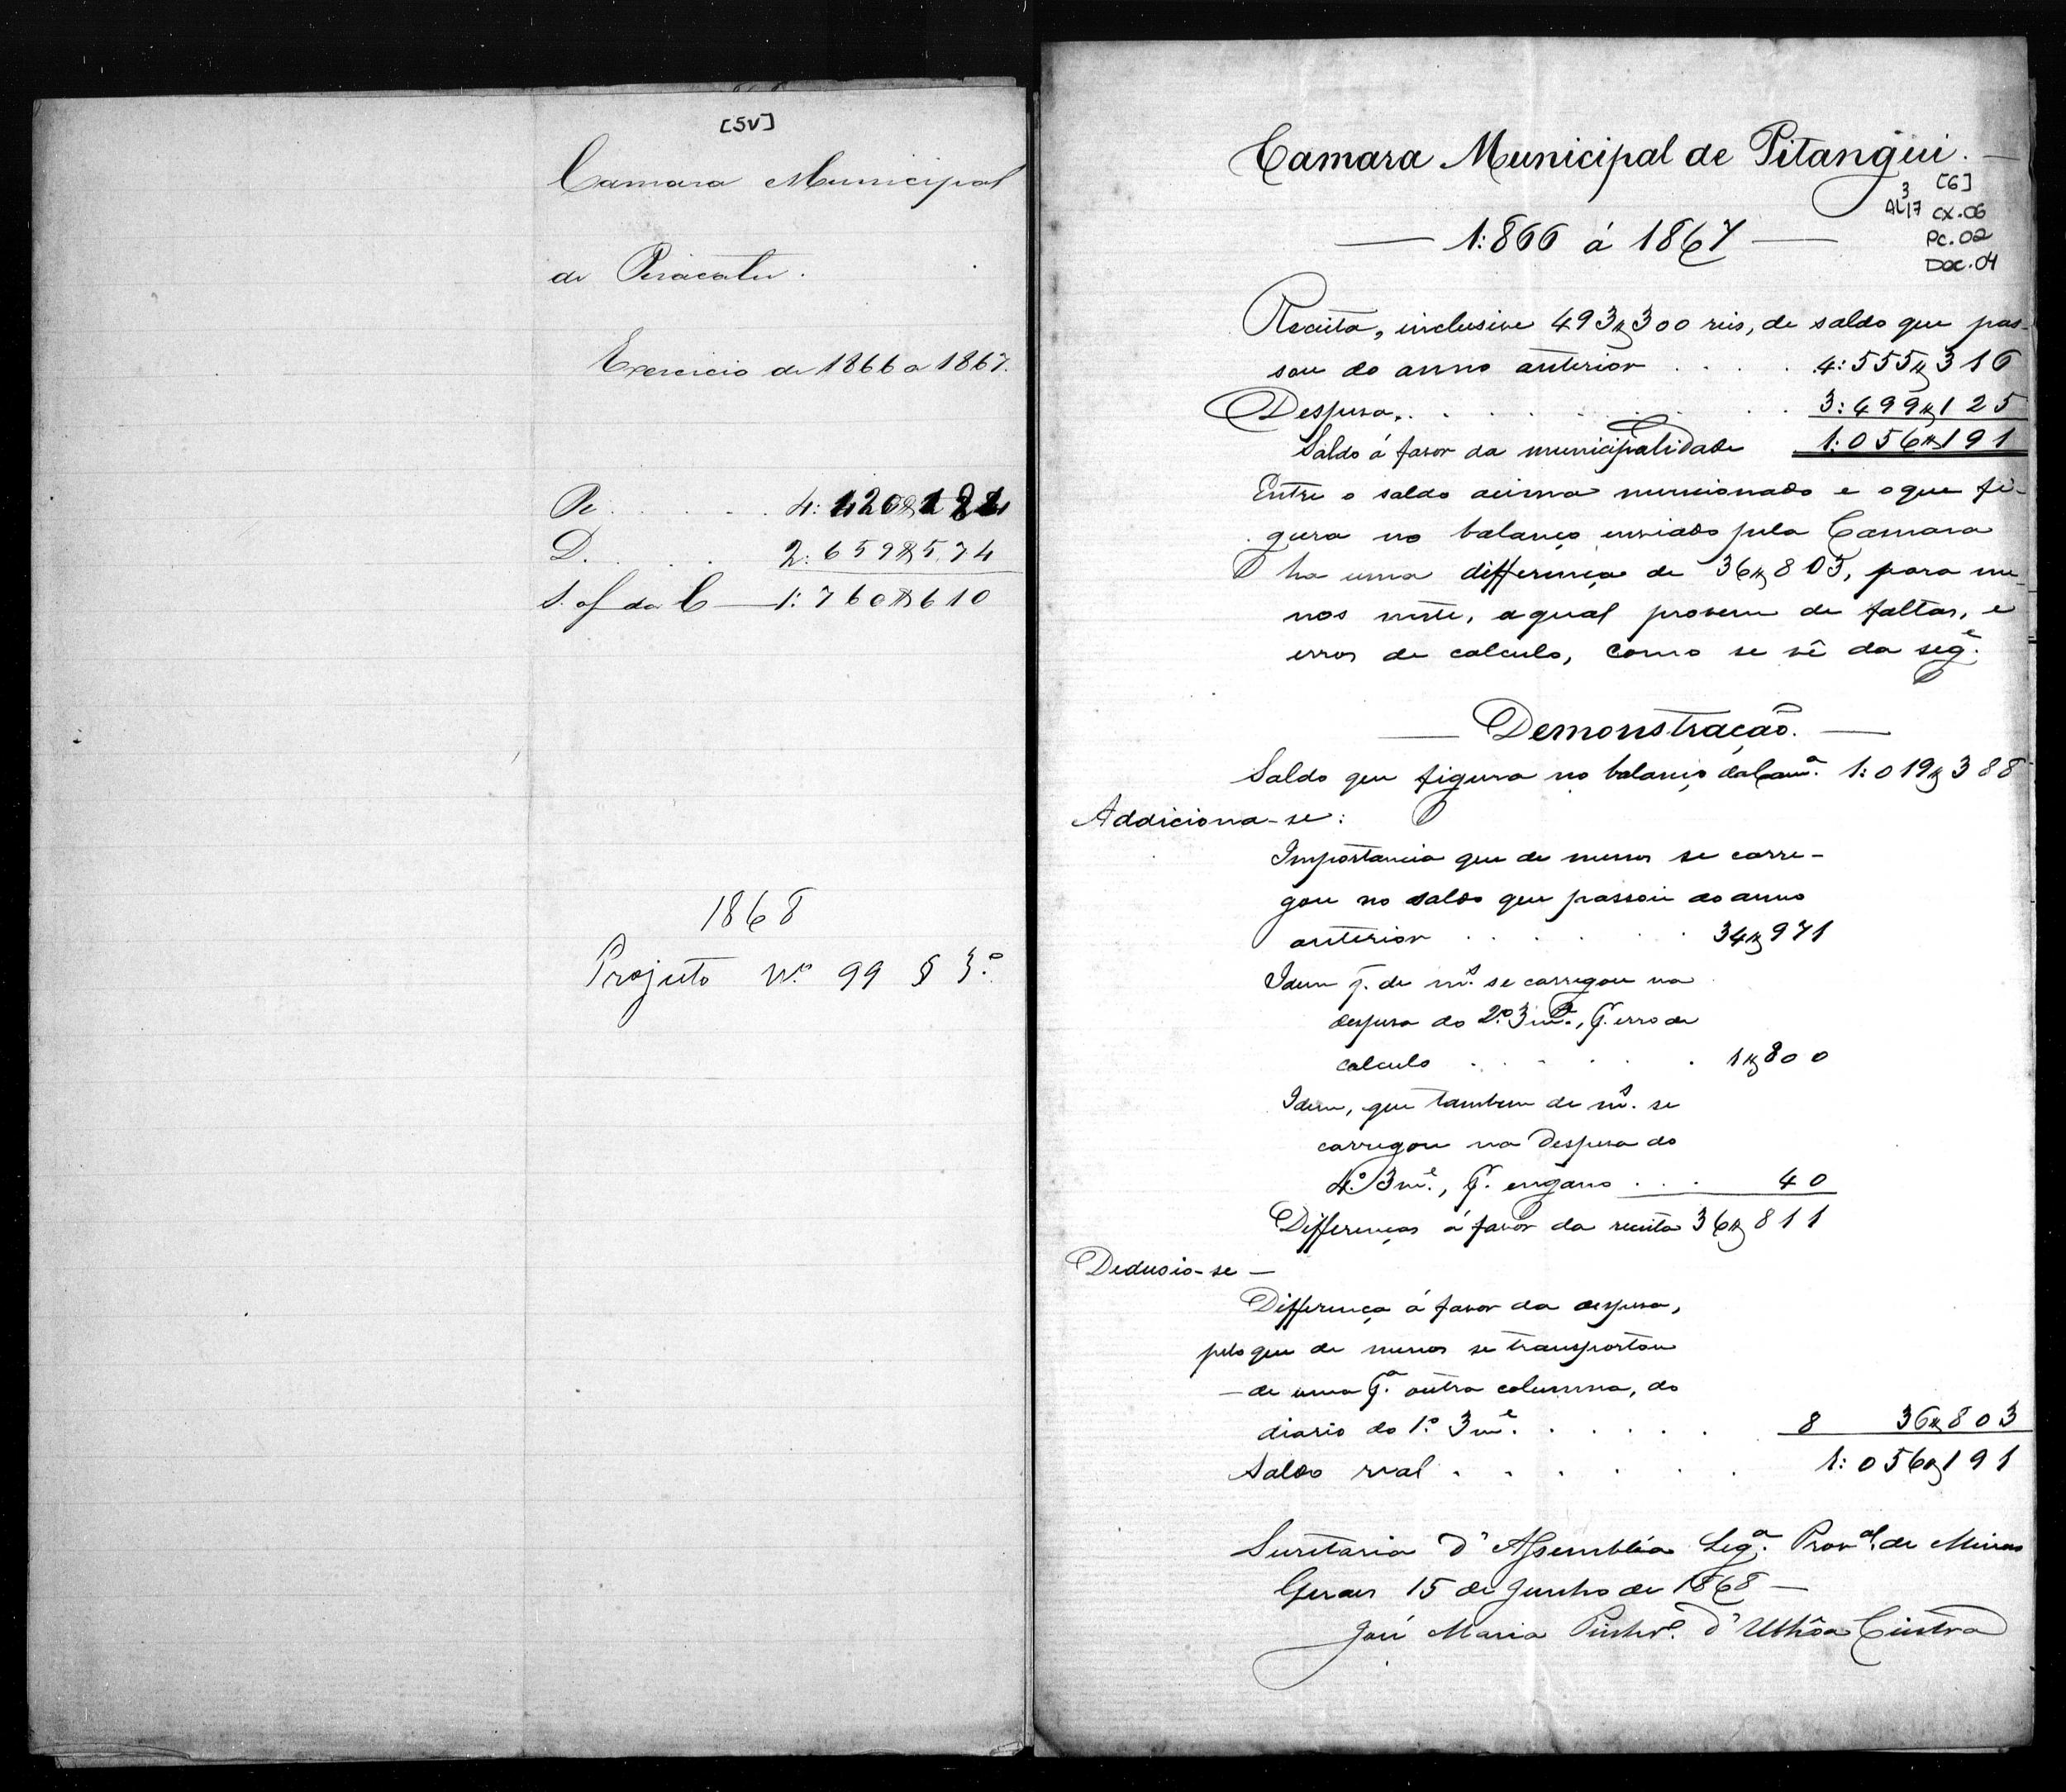 [5V]
Camara Municipal
de Paracatu.
Exercicio de 1866 a 1867.
Re . . . . . 4:420$184
D. . . . . 2:659$574
S. af da C — 1:760$610
1868
Projecto Nº 99 § 3º
Camara Municipal de Pitangui. —
[6]
3
AL17 CX.06
PC.02
Doc.04
— 1:866 á 1867 —
Receita, inclusive 493$300 reis, de saldo que pas-
sou do anno anterior . . . . 4:555$316
Despesa, . . . . . . . . 3:499$125
Saldo á favor da municipalidade 1:056$191
Entre o saldo acima mencionado e o que fi-
gura no balanço enviado pela Camara
ha uma differença de 36$803, para me-
nos neste, a qual provem de faltas, e
erros de calculo, como se vê da segᵉ.
— Demonstração. —
Saldo que figura no balanço da Camᵃ. 1:019$388
Addiciona-se:
Importancia que de menos se carre-
gou no saldo que passou do anno
anterior . . . . . 34$971
Idem q. de mˢ. se carregou na
despesa do 2º 3mᵉ., p. erro de
calculo . . . . . 1$800
Idem, que tambem de mˢ. se
carregou na despesa do
4º 3mᵉ., p. engano . . . 40
Differenças á favor da receita 36$811
Dedusio-se —
Differença á favor da despesa,
pelo que de menos se transportou
— de uma pᵃ. outra columna, do
diario do 1º 3mᵉ. . . . . . 8 36$803
Saldo real . . . . . . 1:056$191
Secretaria d'Assembléa Legᵃ. Provᵃˡ. de Minas
Geraes 15 de Junho de 1868 —
José Maria Pinhrº. d'Uthôa Cintra